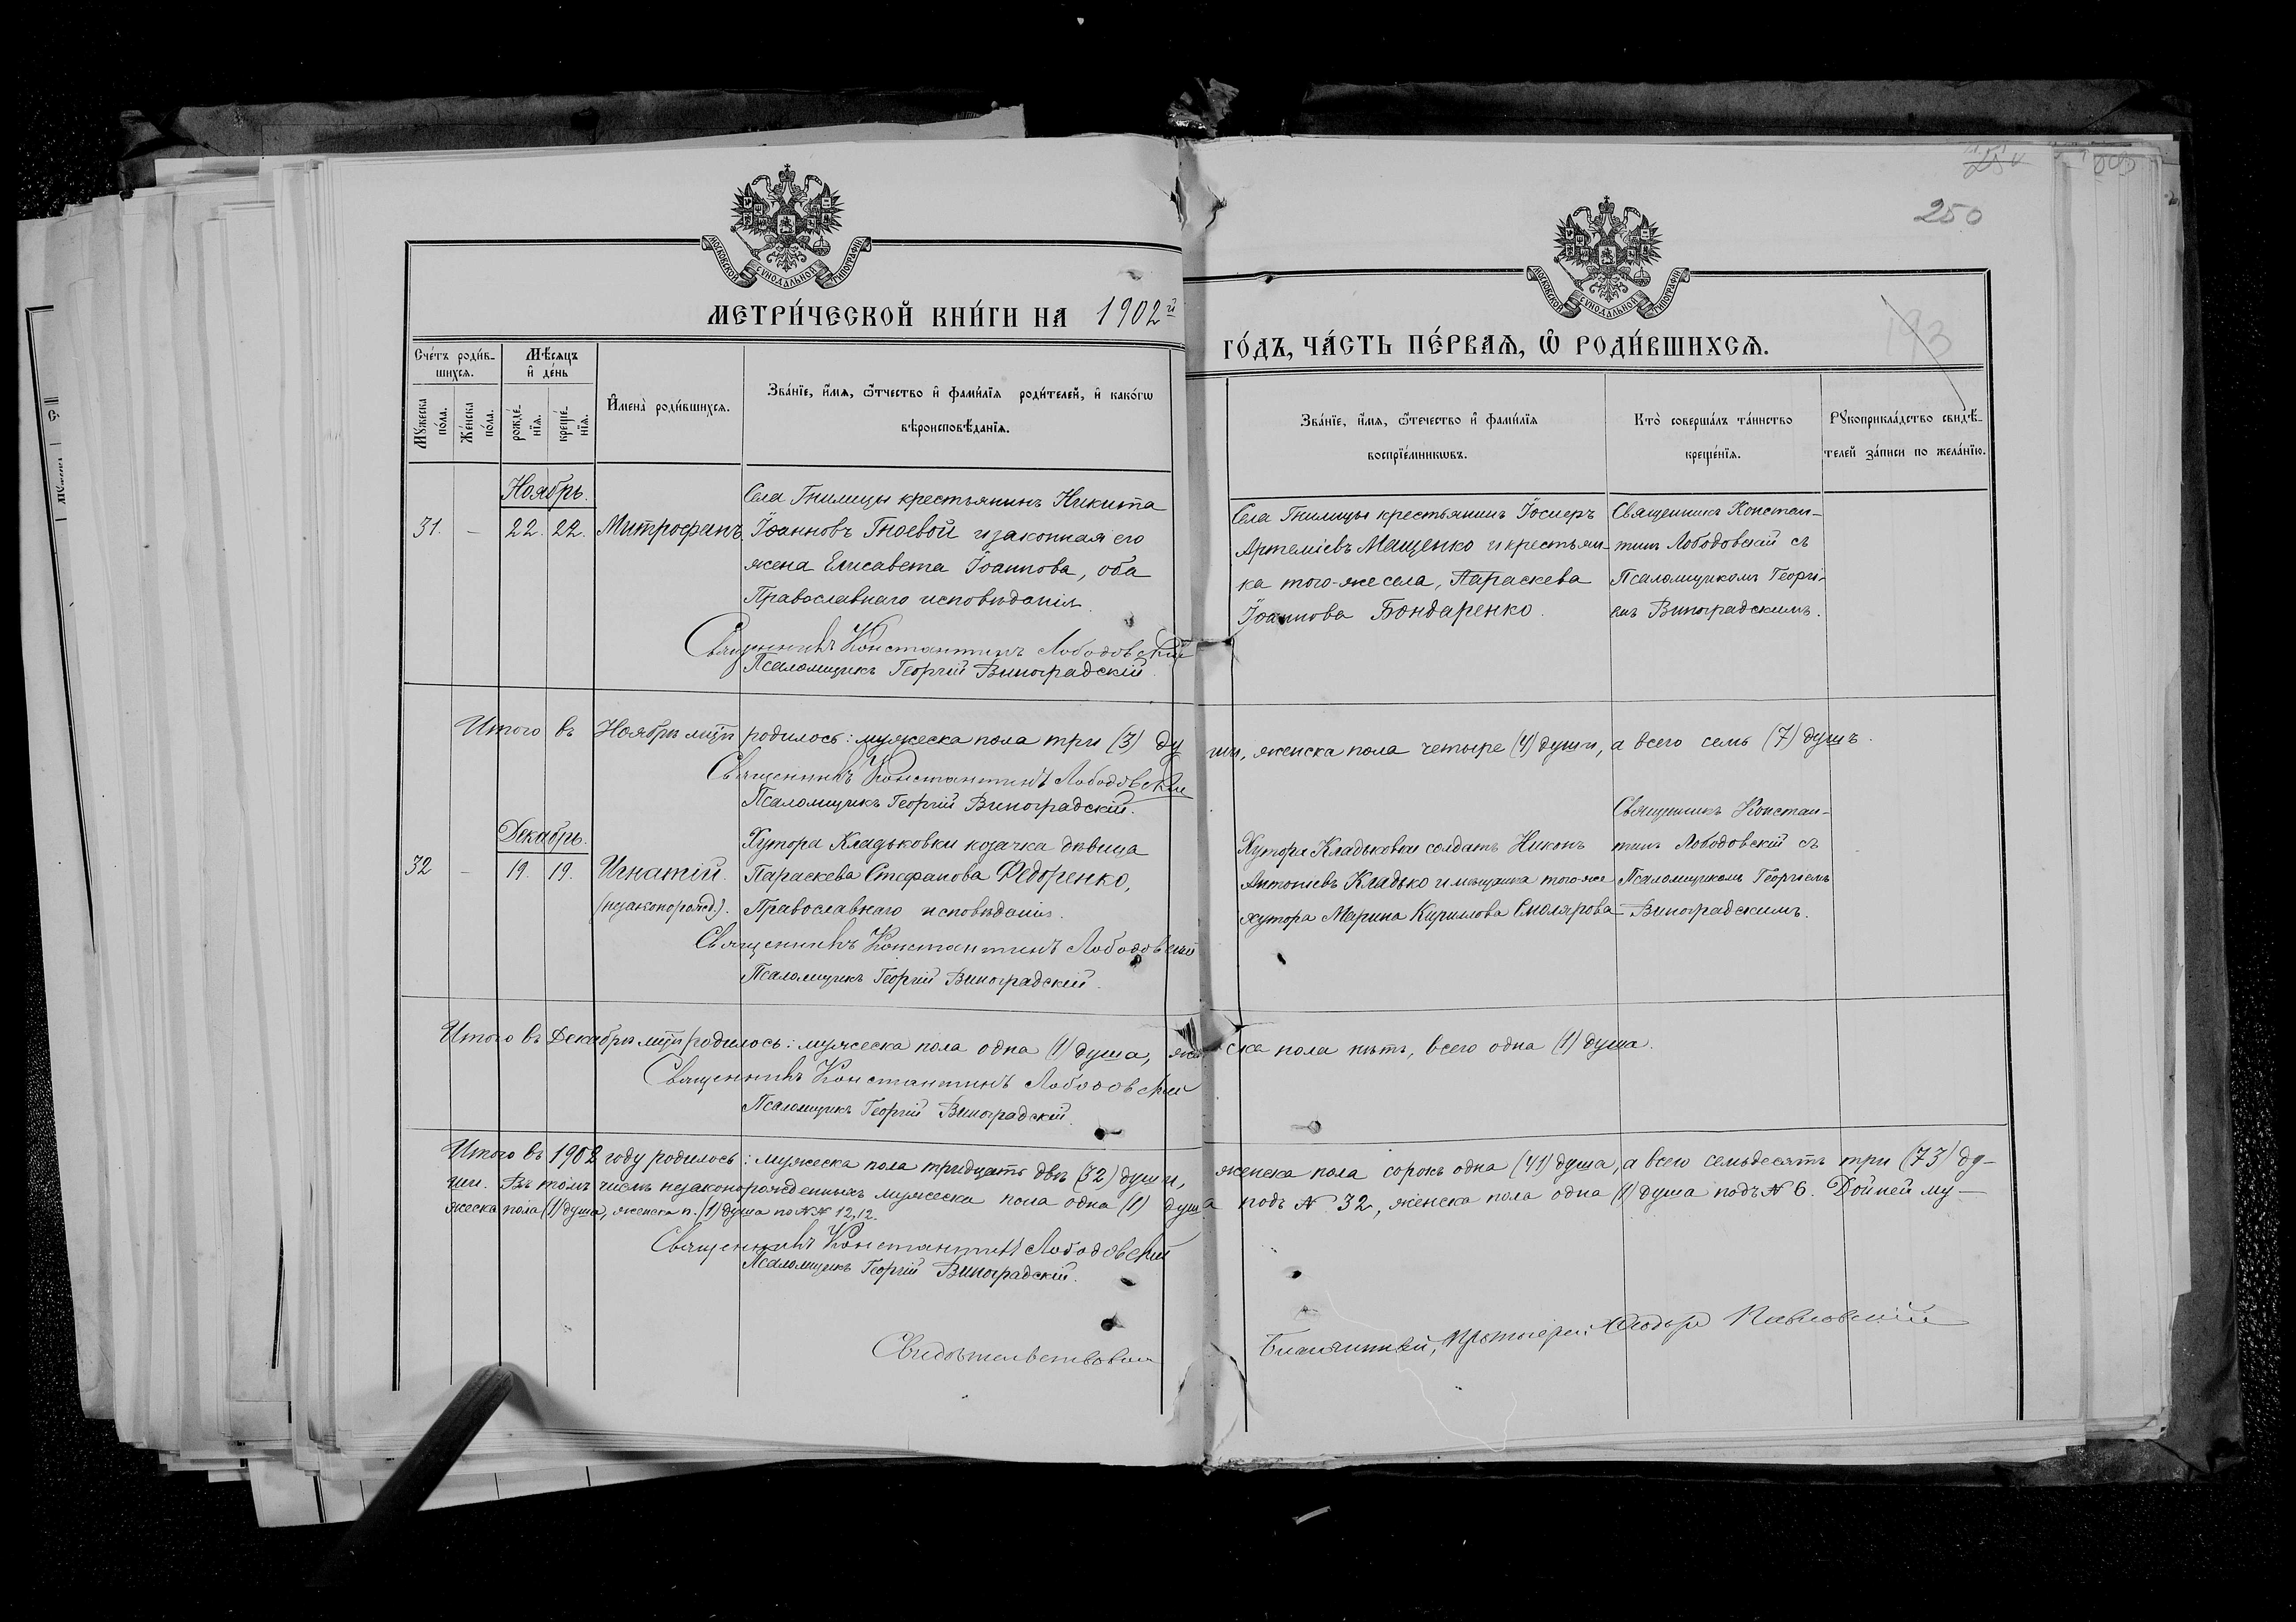 254
250
193
МОСКОВСКОЙ СѴНОДАЛЬНОЙ ТИПОГРАФІИ
МОСКОВСКОЙ СѴНОДАЛЬНОЙ ТИПОГРАФІИ
МЕТРИ́ЧЕСКОЙ КНИ́ГИ НА 1902й
ГО́ДЪ, ЧА́СТЬ ПЕ́РВАѦ, Ѡ҆ РОДИ́ВШИХСѦ.
Сче́тъ роди́в-
шихсѧ.
Мѣ́сѧцъ
и҆ де́нь
Мꙋ́жеска
по́ла.
Же́нска
по́ла.
рожде́-
нїѧ.
креще́-
нїѧ.
И҆мена̀ роди́вшихсѧ.
Зва́нїе, и҆́мѧ, ѻ҆́тчество и҆ фами́лїѧ роди́телей, и҆ како́гѡ
вѣроисповѣ́данїѧ.
Зва́нїе, и҆́мѧ, ѻ҆́течество и҆ фами́лїѧ
воспрїе́мникѡвъ.
Кто̀ соверша́лъ та́инство
креще́нїѧ.
Рꙋкоприкла́дство свидѣ́-
телей за́писи по жела́нїю.
Ноябрь.
31. - 22. 22. Митрофанъ
Села Гнилицы крестьянинъ Никита
Іоанновъ Гноевой и законная его
жена Елисавета Іоаннова, оба
Православнаго исповѣданія.
Священникъ Константинъ Лободовскій
Псаломщикъ Георгій Виноградскій.
Села Гнилицы крестьянинъ Іосифъ
Артеміевъ Мащенко и крестьян-
ка того-же села, Параскева
Іоаннова Бондаренко.
Священникъ Констан-
тинъ Лободовскій съ
Псаломщикомъ Георгі-
емъ Виноградскимъ.
Итого въ Ноябрѣ мц҃ѣ родилось: мужеска пола три (3) души, женска пола четыре (4) души, а всего семь (7) душъ.
Священникъ Константинъ Лободовскій
Псаломщикъ Георгій Виноградскій.
Декабрь.
32 - 19. 19. Игнатій.
(незаконорожд).
Хутора Кладьковки козачка дѣвица
Параскева Стефанова Федоренко,
Православнаго исповѣданія.
Священникъ Константинъ Лободовскій
Псаломщикъ Георгій Виноградскій.
Хутора Кладьковки солдатъ Никонъ
Антоніевъ Кладько и мѣщанка того-же
хутора Марина Кириллова Смолярова
Священникъ Констан-
тинъ Лободовскій съ
Псаломщикомъ Георгіемъ
Виноградскимъ.
Итого въ Декабрѣ мц҃ѣ родилось: мужеска пола одна (1) душа, женска пола нѣтъ, всего одна (1) душа.
Священникъ Константинъ Лободовскій
Псаломщикъ Георгій Виноградскій.
Итого въ 1902 году родилось: мужеска пола тридцать двѣ (32) души, женска пола сорокъ одна (41) душа, а всего семьдесятъ три (73) ду-
ши. Въ томъ числѣ незаконорожденныхъ мужеска пола одна (1) душа подъ № 32, женска пола одна (1) душа подъ № 6. Двойней му-
жеска пола (1) душа, женска п. (1) душа по №№ 12, 12.
Священникъ Константинъ Лободовскій
Псаломщикъ Георгій Виноградскій.
Свидѣтельствовалъ
Благочинный, Протоіерей